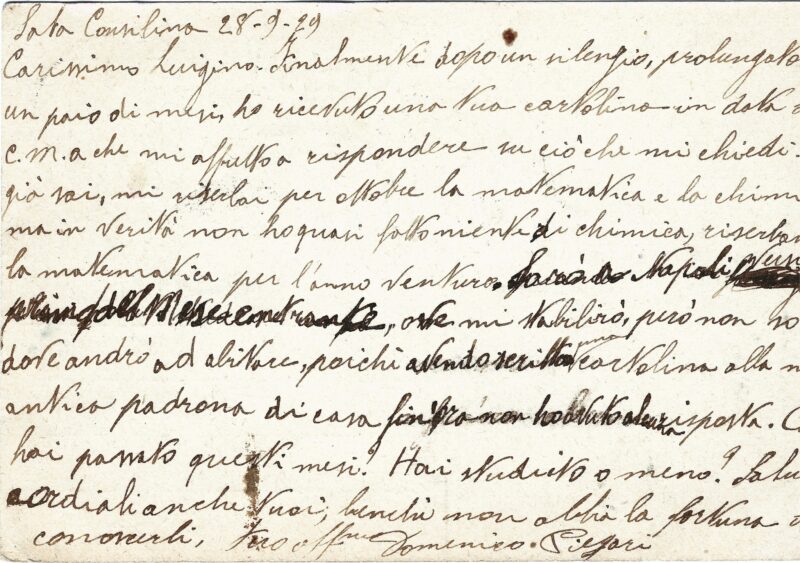 Sala Consilina 28-9-29
Carissimo Luigino. Finalmente dopo un silenzio, prolungato
un paio di mesi, ho ricevuto una tua cartolina in data
c.m. a che mi affretto a rispondere su ciò che mi chiedi.
già sai, mi riserbai per ottobre la matematica e la chimi
ma in verità non ho quasi fatto niente di chimica, riserban
la matematica per l'anno venturo. Sarò a Napoli
del Mese entrante, ove mi stabilirò, però non so
dove andrò ad abitare, poichè avendo scritto una cartolina alla m
antica padrona di casa finora non ho avuto alcuna risposta. C
hai passato questi mesi? Hai studiato o meno? Salu
cordiali anche tuoi, benchè non abbia la fortuna
conoscerli, tuo aff.mo Domenico